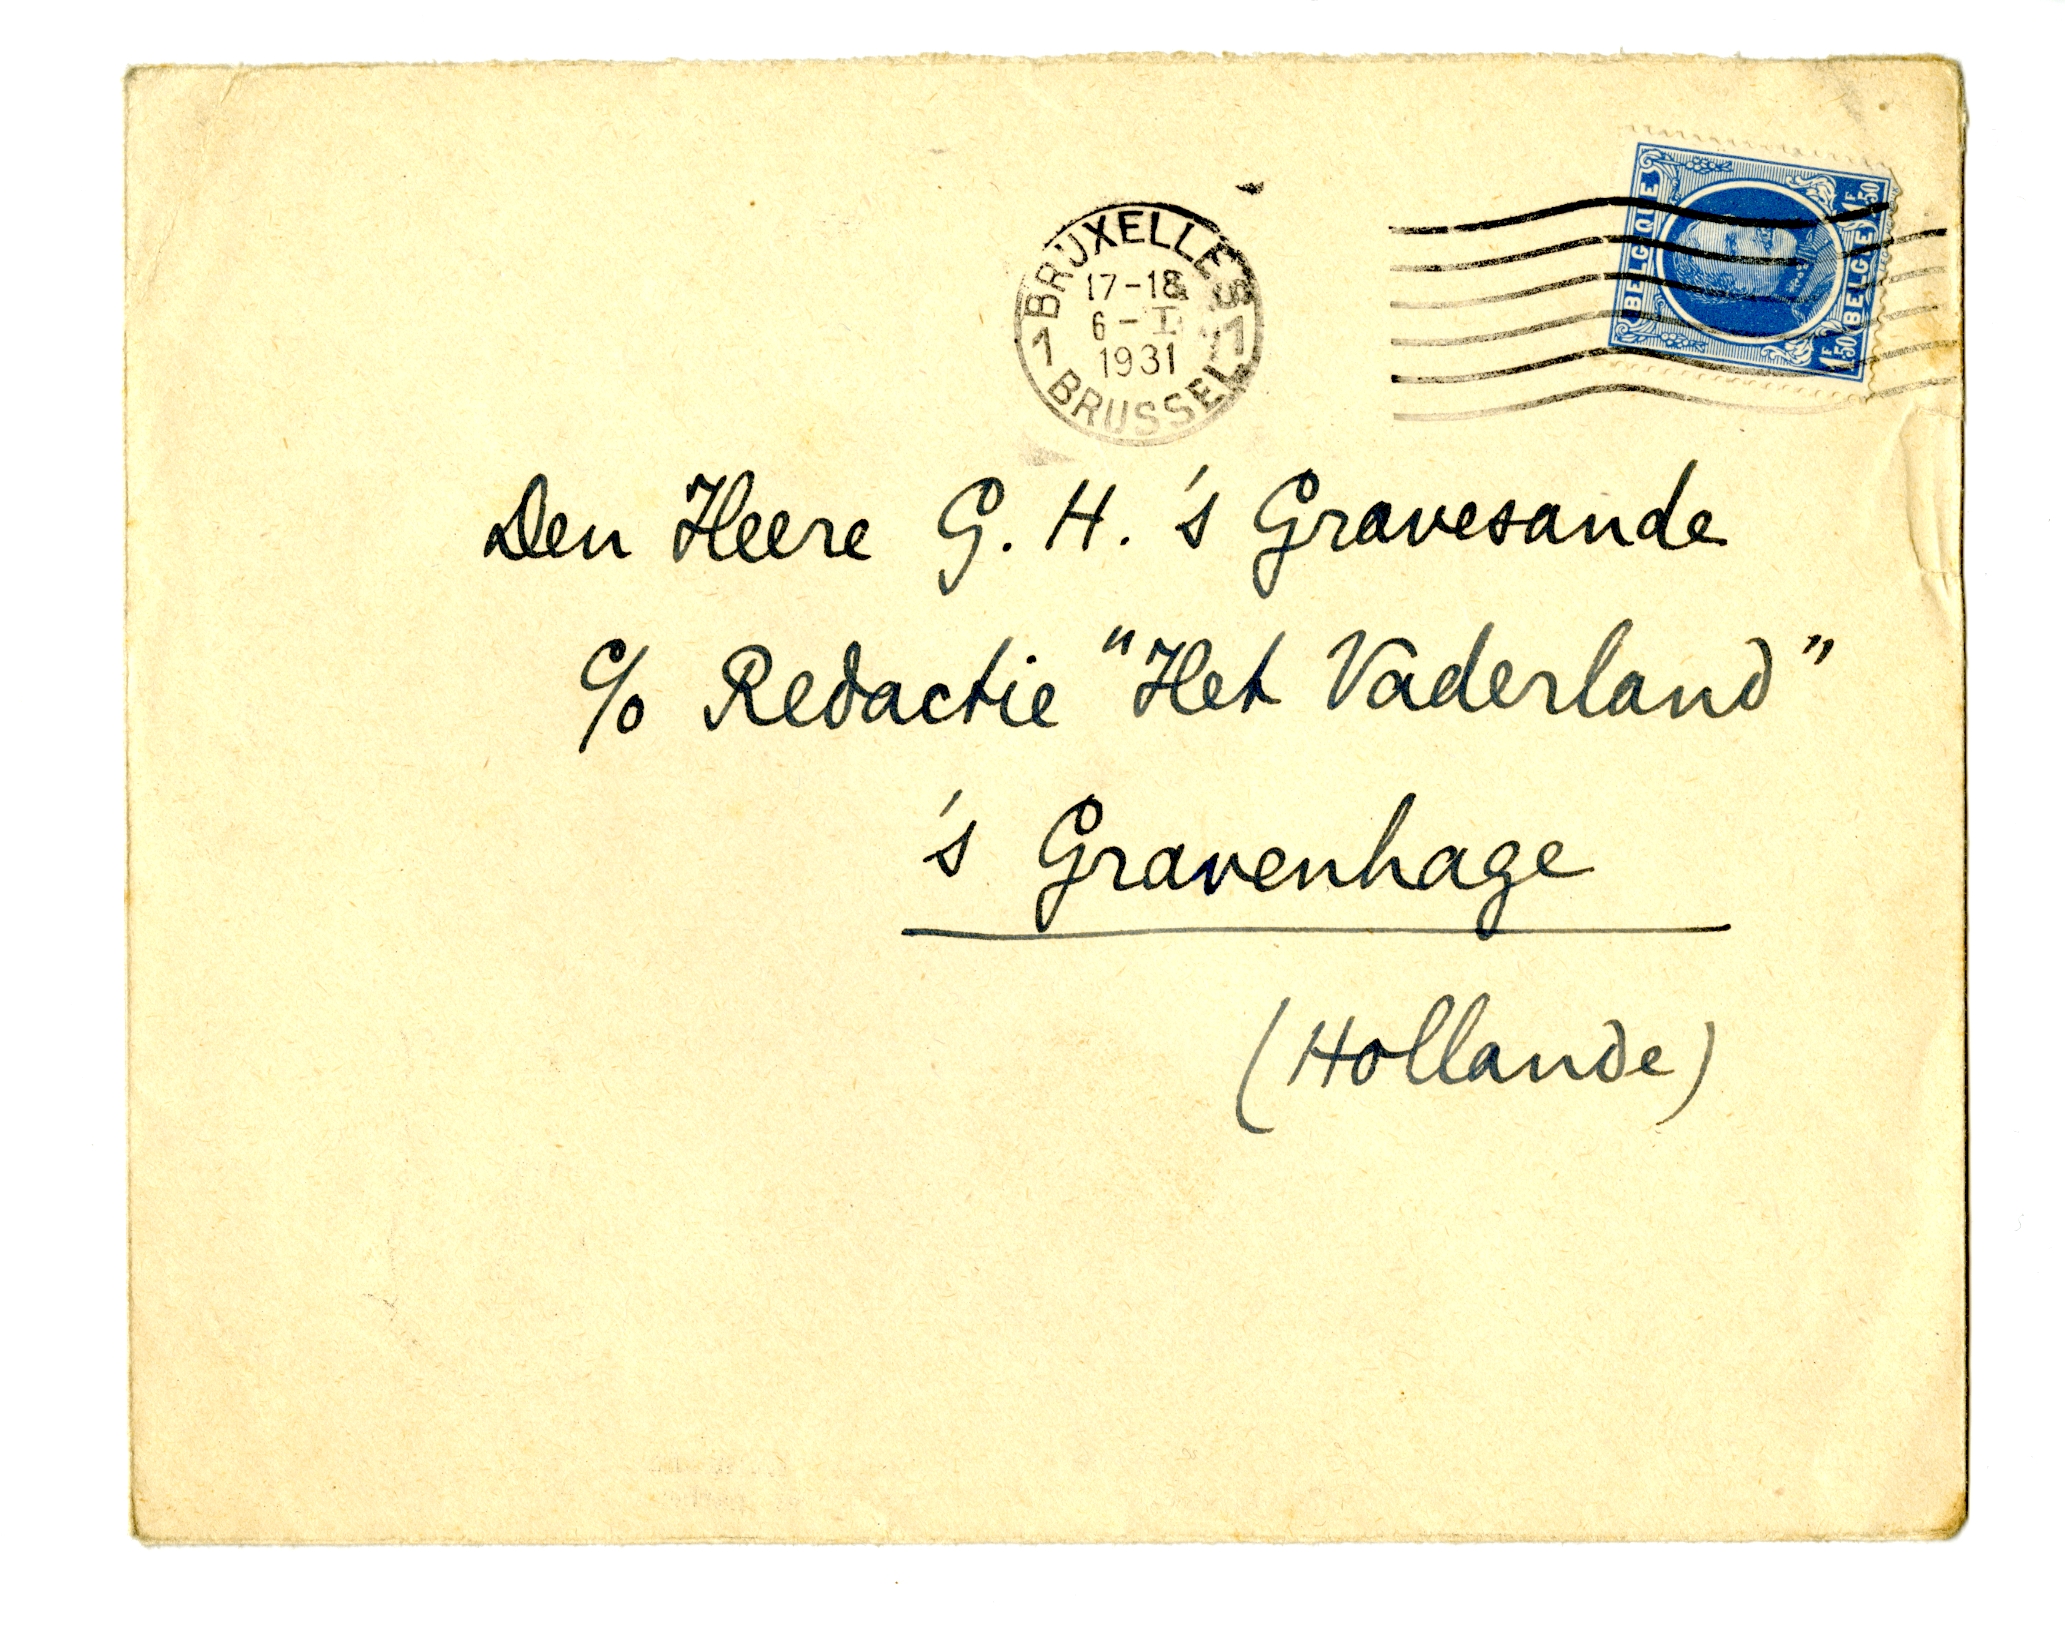 BRUXELLES
17-18
6-I
1931
1 1
BRUSSEL
BELGIQUE
BELGIË
1F50
1F50
Den Heere G. H. 's Gravesande
c/o Redactie "Het Vaderland"
's Gravenhage
(Hollande)